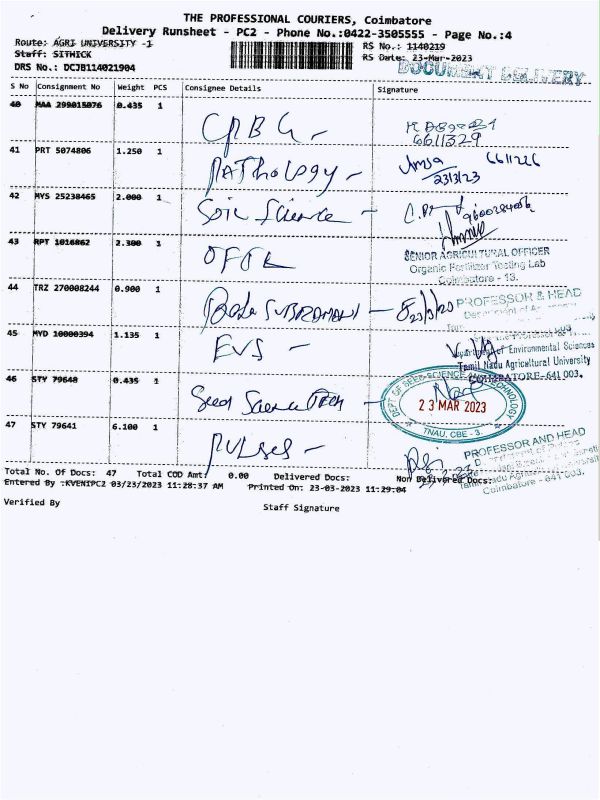 THE PROFESSIONAL COURIERS, Coimbatore
Delivery Runsheet - PC2 - Phone No.:0422-3505555 - Page No.:4
Route: AGRI UNIVERSITY -1 RS No.: 1140219
Staff: SITHICK RS Date: 23-Mar-2023
DRS No.: DCJB114021904 DOCUMENT DELIVERY
S No Consignment No Weight PCS Consignee Details Signature
40 MAA 299015076 0.435 1 CPBG -
6611329
41 PRT 5074806 1.250 1 Pathology - 6611226
23/3/23
42 MYS 25238465 2.000 1 Soil Science -
43 RPT 1016862 2.300 1 OFTL
SENIOR AGRICULTURAL OFFICER
Organic Fertilizer Testing Lab
Coimbatore - 13.
44 TRZ 270008244 0.900 1 PROFESSOR & HEAD
45 MYD 10000394 1.135 1 EVS -
Department of Environmental Sciences
Tamil Nadu Agricultural University
COIMBATORE-641 003.
46 STY 79648 0.435 1 Seed Science Tech -
DEPT OF SEED SCIENCE AND TECHNOLOGY
23 MAR 2023
TNAU, CBE - 3.
47 STY 79641 6.100 1 Pulses -
PROFESSOR AND HEAD
Coimbatore - 641 003.
Total No. Of Docs: 47 Total COD Amt: 0.00 Delivered Docs: Non Delivered Docs:
Entered By :KVENIPC2 03/23/2023 11:28:37 AM Printed On: 23-03-2023 11:29:04
Verified By Staff Signature